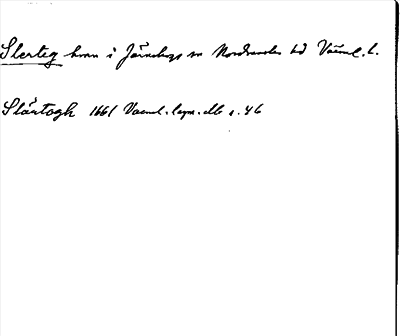 Slerteg kvarn i Järnskogs sn Nordmarks hd Värml. l.
Slärtogh 1661 Vaeml. lagm. dlb s. 46